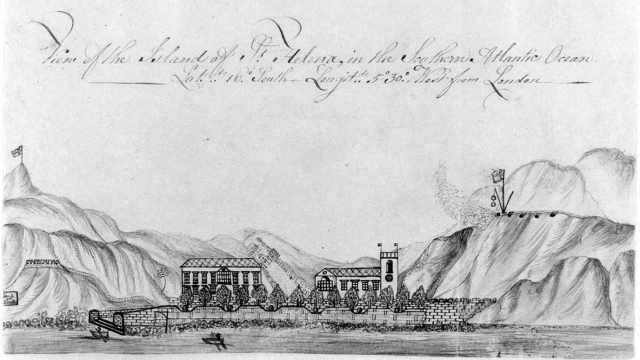 View of the Island of St. Helena, in the Southern Atlantic Ocean.
Lat.de 16.° South — Longit.de 5.° 30.' West from London